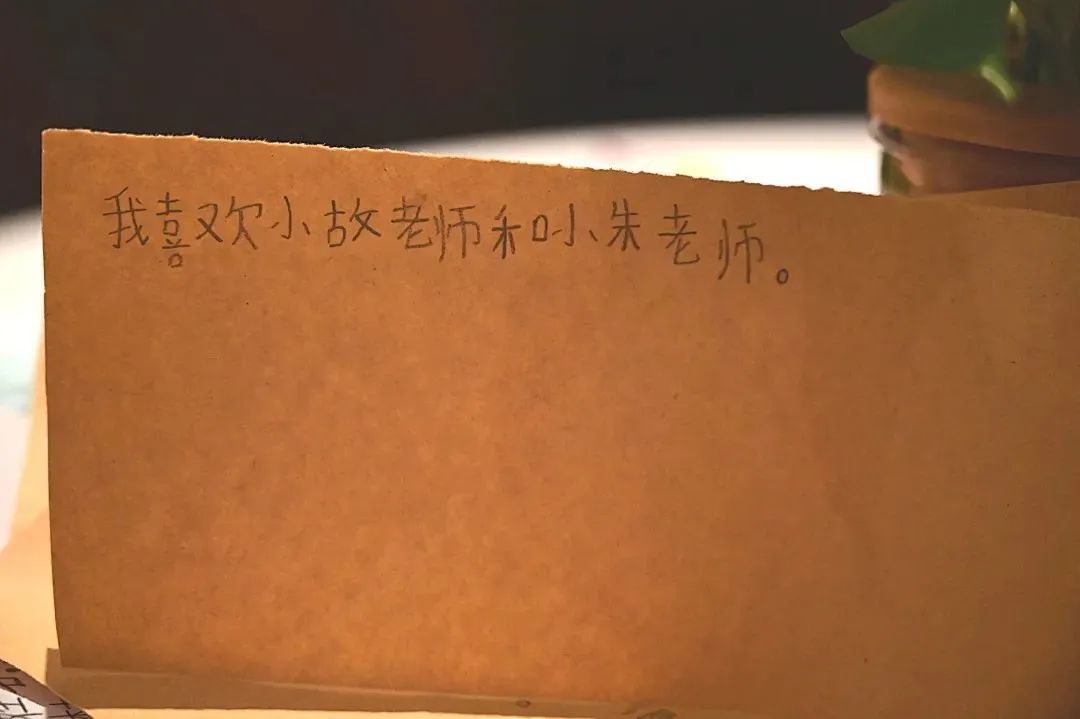 我喜欢小故老师和小朱老师。